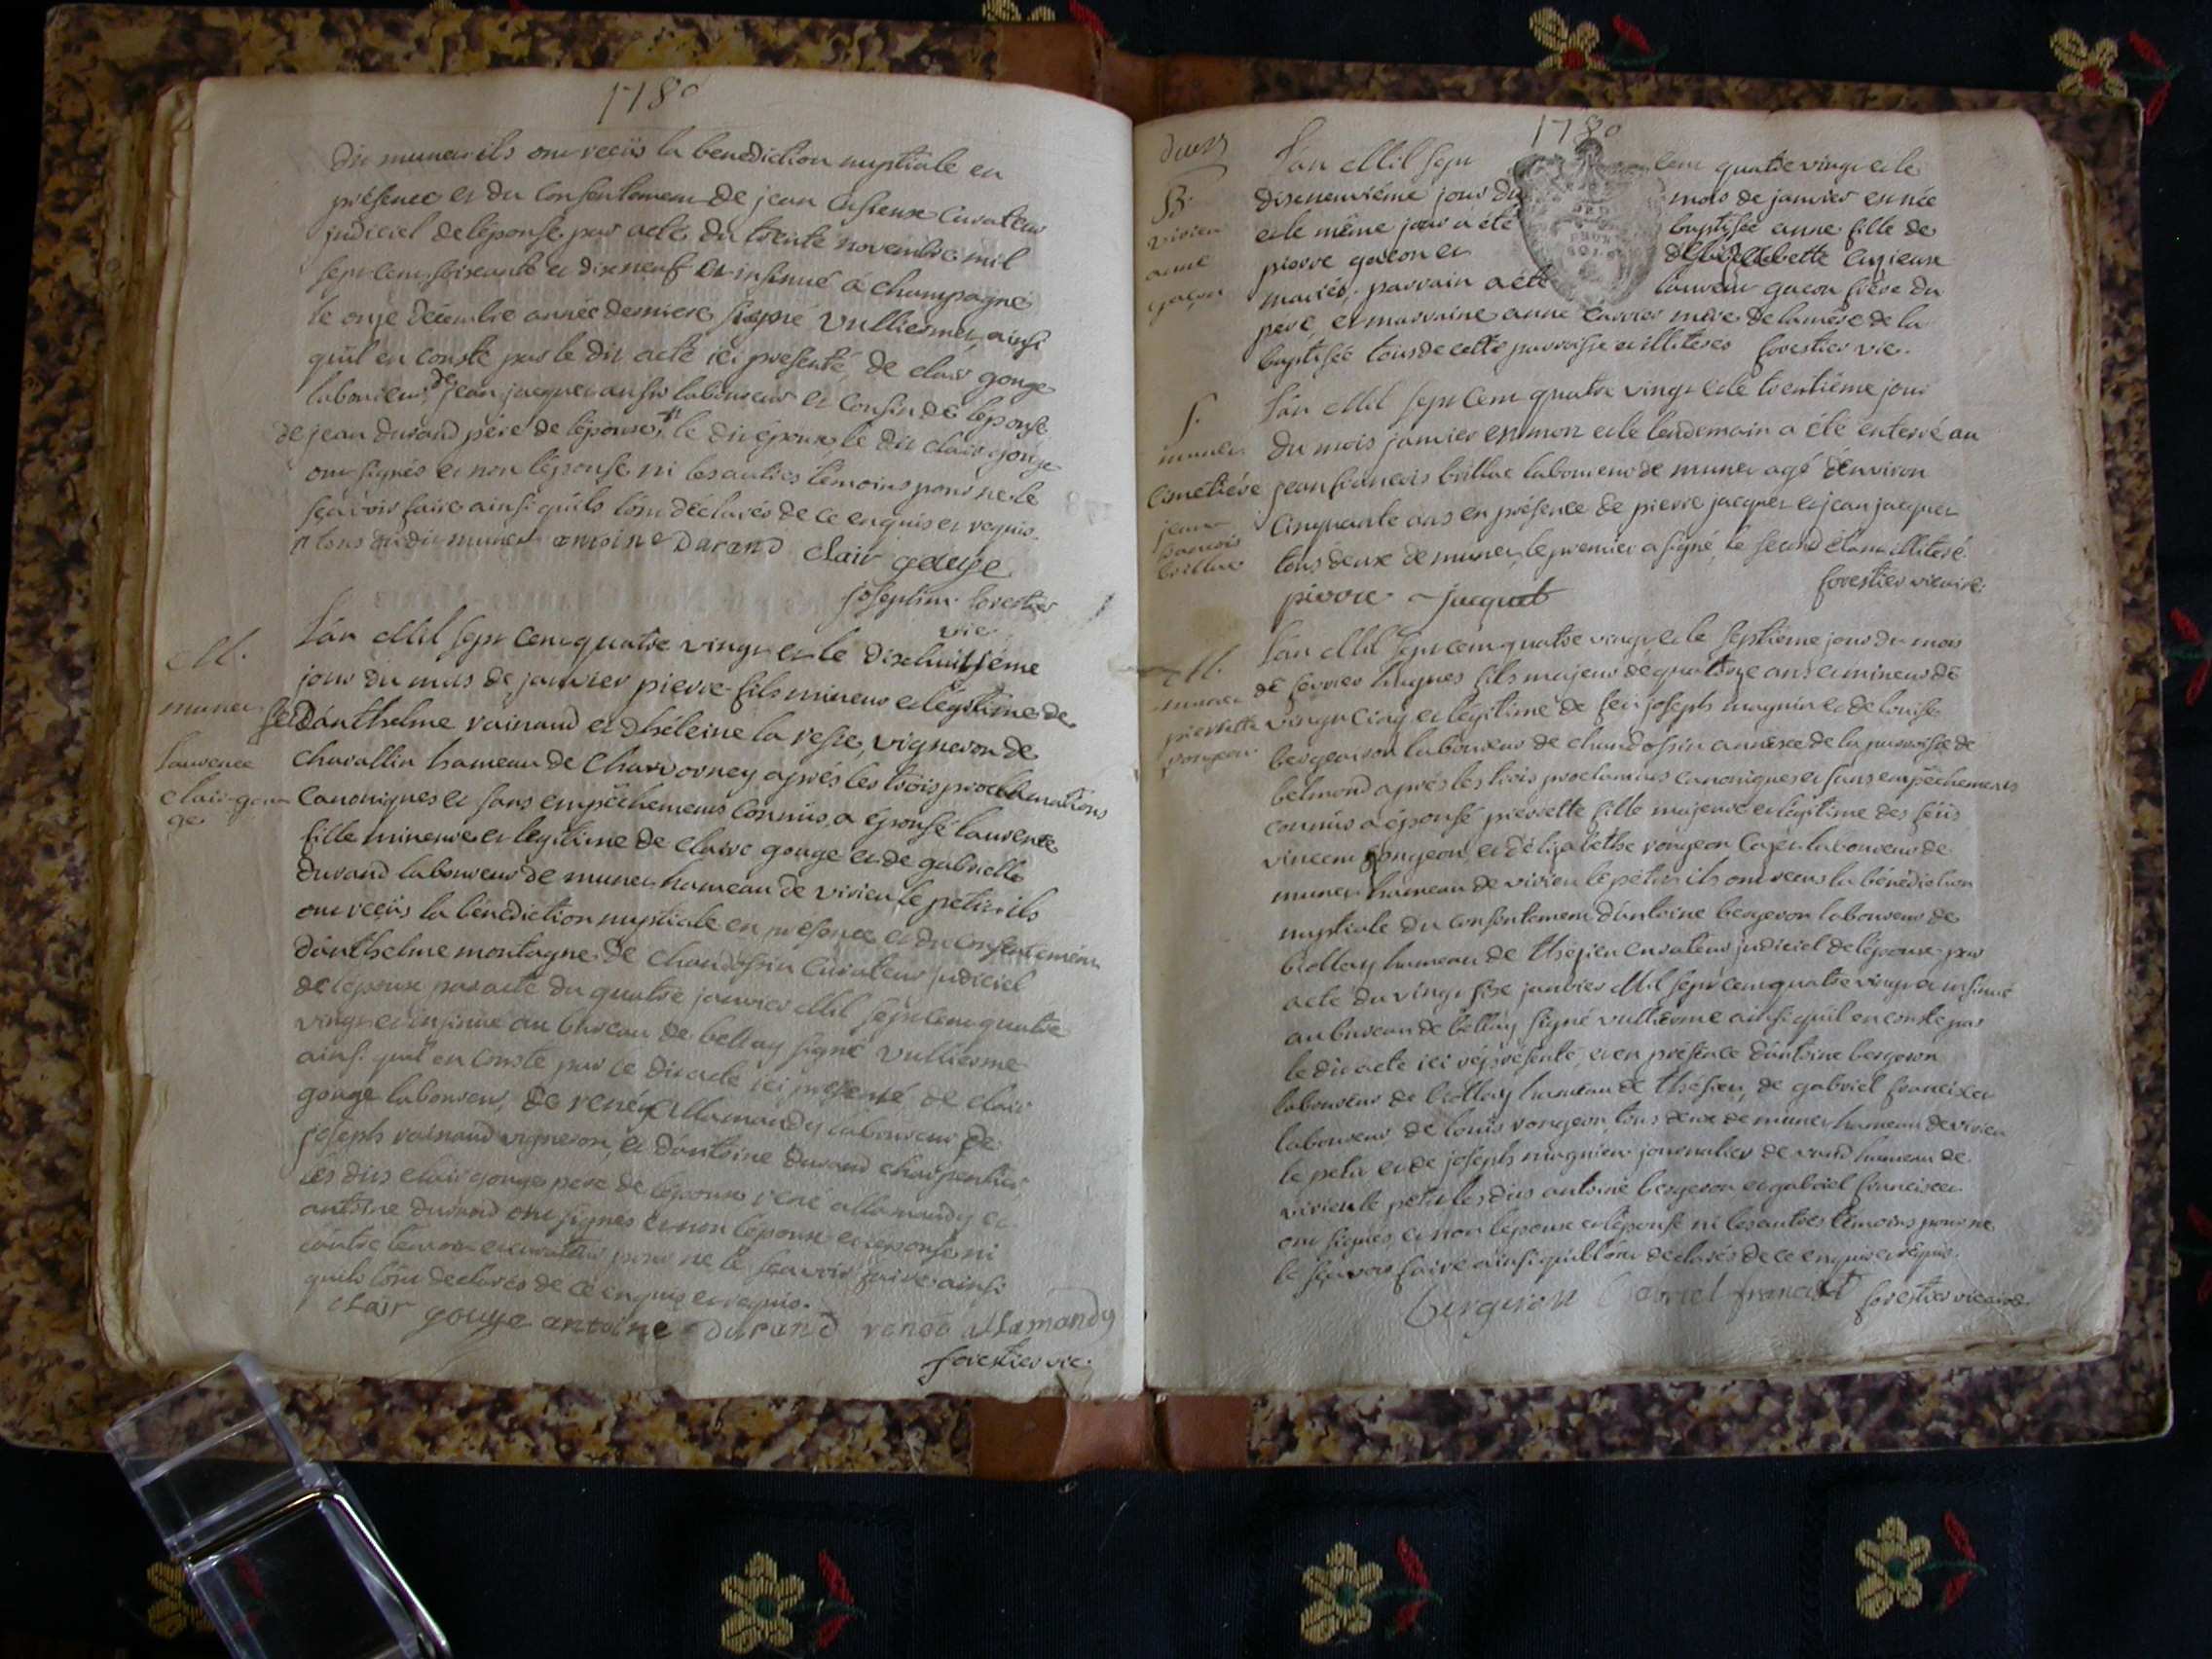 1780
dit munet ils ont reçûs la benediction nuptiale en
présence et du consentement de jean Cusieux Curateur
judiciel de lépouse par acte du trente novembre mil
sept cent soixante et dixneuf et insinué à champagne
le onze décembre année derniere signé vulliermet, ainsi
qu'il en conste par le dit acte ici presenté, de clair gouge
laboureur, de jean jacquet aussi laboureur et cousin de lépouse
de jean durand père de lépoux, le dit époux, le dit clair gouge
ont signés et non lépouse ni les autres témoins pour ne le
sçavoir faire ainsi qu'ils l'ont déclarés de ce enquis et requis.
tous du dit munet antoine Durand Clair gouge
Forestier
vic.
M.
munet
laurence
clair gou
ge
L'an Mil sept cent quatre vingt et le dixhuitième
jour du mois de janvier pierre fils mineur et légitime de
feu d'anthelme rainaud et d'héleine la resse, vigneron de
Chavallin hameau de Charvorney après les trois proclamations
Canoniques et sans empêchements connûs, a épousé laurence
fille mineure et legitime de claire gouge et de gabrielle
durand laboureur de munet hameau de virieu le petit, ils
ont reçûs la bénédiction nuptiale en présence et du consentement
d'anthelme montagne de chandossin Curateur judiciel
de lepoux par acte du quatre janvier Mil sept cent quatre
vingt et insinué au bureau de bellay signé vullierme
ainsi qu'il en conste par ce dit acte ici presenté de clair
gouge laboureur, de rené allamandy laboureur de
joseph rainaud vigneron, et d'antoine durand charpentier
les dits clair gouge pere de lépouse rené allamandy et
antoine durand ont signés et non lépoux et lépouse ni
l'autre temoin et curateur pour ne le sçavoir faire ainsi
qu'ils l'ont declarés de ce enquis et requis.
clair gouge antoine Durand renéé allamandy
forestier vic.
1780
B.
virieu
anne
gaçon
L'an Mil sept cent quatre vingt et le
dixneuvième jour du mois de janvier est née
et le même jour a été baptisée anne fille de
pierre gacon et Cuzieux
mariés, parrain a été laurent gacon frère du
père, et marraine anne carrier mère de la mère de la
baptisée tous de cette parroisse et illiteres forestier vic.
S.
munet
Cimetiére
jean
francois
brillat
L'an Mil sept cent quatre vingt et le trentième jour
du mois janvier est mort et le lendemain a été enterré au
jean francois brillat laboureur de munet agé d'environ
cinquante ans en présence de pierre jacquet et jean jacquet
tous deux de munet, le premier a signé, le second étant illiteré.
forestier vicaire.
pierre jacquet
M.
munet
pierrette
vongeon
L'an Mil sept cent quatre vingt et le septième jour du mois
de fevrier hugues fils majeur de quatorze ans et mineur de
vingt cinq et légitime de feu joseph magnin et de louise
bergeiron laboureur de chandossin annexe de la parroisse de
belmond après les trois proclamats canoniques et sans empêchements
connûs a épousé pierrette fille majeure et légitime des feûs
vincent vongeon et d'elizabethe vongeon laboureur de
munet hameau de virieu le petit, ils ont recus la bénédiction
nuptiale du consentement d'antoine bergeron laboureur de
brottay hameau de thézieu curateur judiciel de lépoux par
acte du vingt six janvier Mil sept cent quatre vingt et insinué
au bureau de bellay signé vullierme ainsi qu'il en conste par
le dit acte ici représenté, et en présence d'antoine bergeron
laboureur de brottay hameau de thésieu, de gabriel franciset
laboureur de louis vongeon, tous deux de munet hameau de virieu
le petit et de joseph magnin journalier de hameau de
virieu le petit les dits antoine bergeron et gabriel franciset
ont signés, et non lépoux et lépouse ni les autres témoins pour ne
le sçavoir faire ainsi qu'ils l'ont declarés de ce enquis et requis.
bergeron Gabriel forestier vicaire